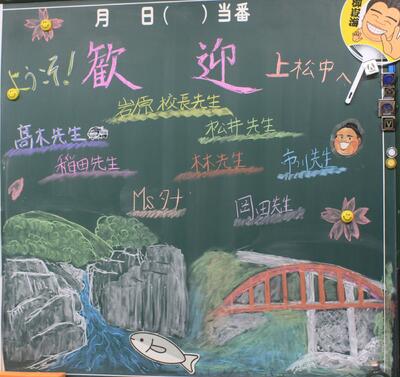 月 日( )当番
ようこそ! 歓迎 上松中へ
岩原校長先生
高木先生 松井先生
稲田先生 林先生 市川先生
Msタナ 岡田先生